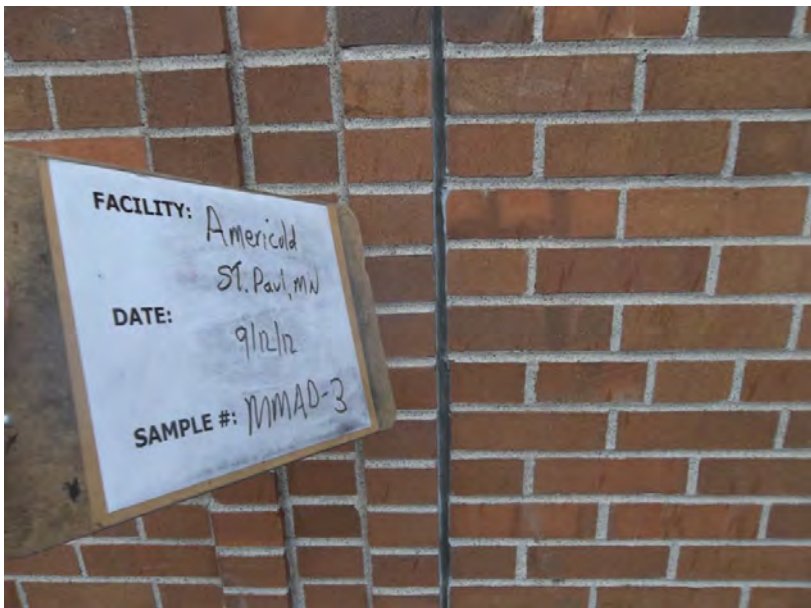 FACILITY: Americold
ST. Paul, MN
DATE:
9/12/12
SAMPLE #: MMAD-3